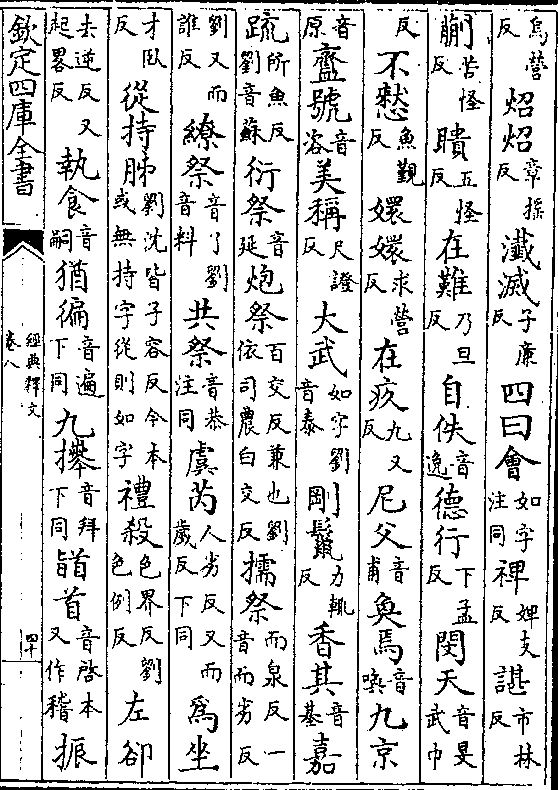 烏營反炤炤章搖反瀸滅子廉反四曰會如字注同禆婢支反諶市林反
蒯苦怪反聵五怪反在難乃旦反自佚音逸德行下孟反閔天音旻武巾
反不憖魚覲反嬛嬛求營反在疚九又反尼父音甫奐焉音喚九京
音原齍號音咨美稱尺證反大武如字劉音泰剛鬛力輒反香其音基嘉
疏所魚反劉音蘇衍祭音延炮祭百交反兼也劉依司農白交反擩祭而泉反一音而劣反
劉又而誰反繚祭音了劉音料共祭音恭注同虞芮人劣反又而歲反下同為坐
才臥反從持胏劉沈皆子容反今本或無持字從則如字禮殺色界反劉色例反左卻
去逆反又起畧反執食音嗣猶徧音遍下同九㩉音拜下同䭫首音啓本又作稽振
欽定四庫全書
經典釋文
卷八
四十